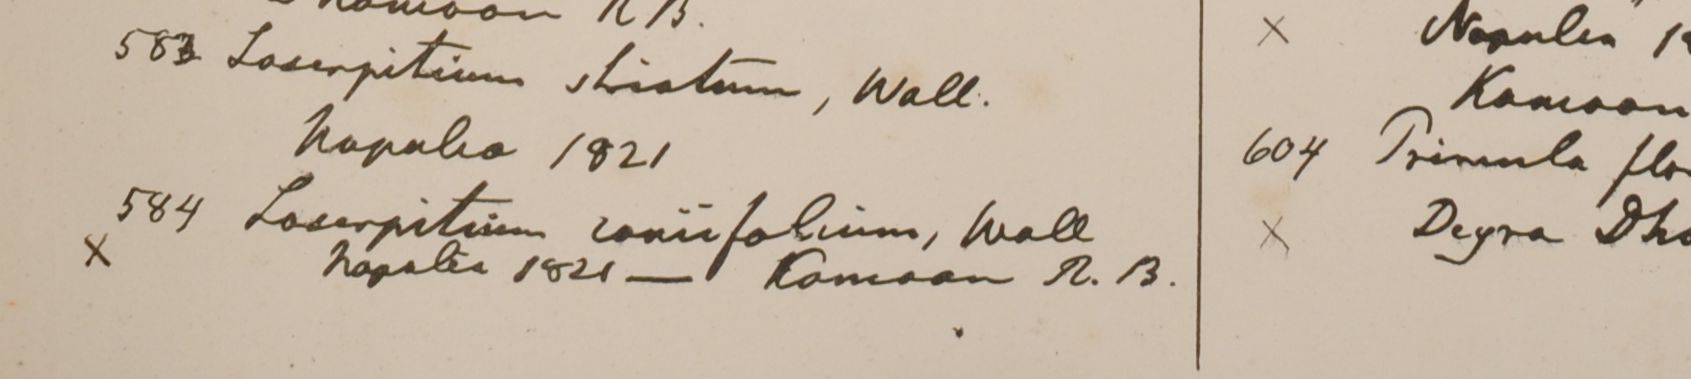 Kamaon R B.
583 Laserpitium striatum, Wall.
Napalia 1821
584 Laserpitium coniifolium, Wall
X Napalia 1821 — Kamaon R. B.
X Napalia
Kamaon
604 Primula
X Deyra